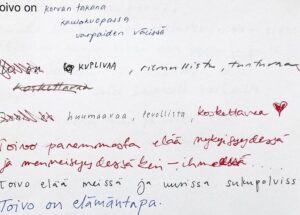 oivo on korvan takana
kaulakuopassa
varpaiden välissä
KUPLIVAA, riemullista, tuntuvaa
koskettavaa
huumaavaa, levollista, koskettavaa
Toivoo paremmasta elää nykyisyydessä
ja menneisyydessäkin – ihmeessä...
Toivo elää meissä ja uusissa sukupolviss
Toivo on elämäntapa.